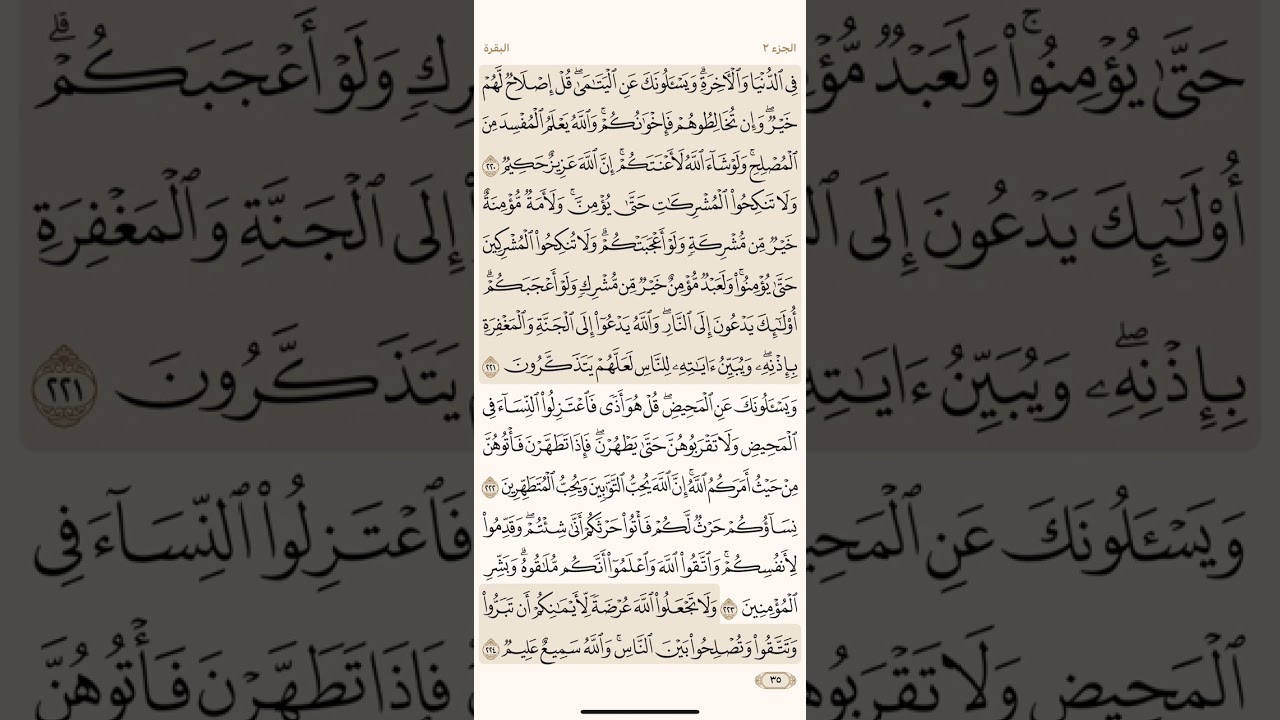 الجزء ٢
البقرة
فِي ٱلدُّنۡيَا وَٱلۡأٓخِرَةِۗ وَيَسۡـَٔلُونَكَ عَنِ ٱلۡيَتَٰمَىٰۖ قُلۡ إِصۡلَاحٞ لَّهُمۡ
خَيۡرٞۖ وَإِن تُخَالِطُوهُمۡ فَإِخۡوَٰنُكُمۡۚ وَٱللَّهُ يَعۡلَمُ ٱلۡمُفۡسِدَ مِنَ
ٱلۡمُصۡلِحِۚ وَلَوۡ شَآءَ ٱللَّهُ لَأَعۡنَتَكُمۡۚ إِنَّ ٱللَّهَ عَزِيزٌ حَكِيمٞ ٢٢٠
وَلَا تَنكِحُواْ ٱلۡمُشۡرِكَٰتِ حَتَّىٰ يُؤۡمِنَّۚ وَلَأَمَةٞ مُّؤۡمِنَةٌ
خَيۡرٞ مِّن مُّشۡرِكَةٖ وَلَوۡ أَعۡجَبَتۡكُمۡۗ وَلَا تُنكِحُواْ ٱلۡمُشۡرِكِينَ
حَتَّىٰ يُؤۡمِنُواْۚ وَلَعَبۡدٞ مُّؤۡمِنٌ خَيۡرٞ مِّن مُّشۡرِكٖ وَلَوۡ أَعۡجَبَكُمۡۗ
أُوْلَٰٓئِكَ يَدۡعُونَ إِلَى ٱلنَّارِۖ وَٱللَّهُ يَدۡعُوٓاْ إِلَى ٱلۡجَنَّةِ وَٱلۡمَغۡفِرَةِ
بِإِذۡنِهِۦۖ وَيُبَيِّنُ ءَايَٰتِهِۦ لِلنَّاسِ لَعَلَّهُمۡ يَتَذَكَّرُونَ ٢٢١
وَيَسۡـَٔلُونَكَ عَنِ ٱلۡمَحِيضِۖ قُلۡ هُوَ أَذٗى فَٱعۡتَزِلُواْ ٱلنِّسَآءَ فِي
ٱلۡمَحِيضِ وَلَا تَقۡرَبُوهُنَّ حَتَّىٰ يَطۡهُرۡنَۖ فَإِذَا تَطَهَّرۡنَ فَأۡتُوهُنَّ
مِنۡ حَيۡثُ أَمَرَكُمُ ٱللَّهُۚ إِنَّ ٱللَّهَ يُحِبُّ ٱلتَّوَّٰبِينَ وَيُحِبُّ ٱلۡمُتَطَهِّرِينَ ٢٢٢
نِسَآؤُكُمۡ حَرۡثٞ لَّكُمۡ فَأۡتُواْ حَرۡثَكُمۡ أَنَّىٰ شِئۡتُمۡۖ وَقَدِّمُواْ
لِأَنفُسِكُمۡۚ وَٱتَّقُواْ ٱللَّهَ وَٱعۡلَمُوٓاْ أَنَّكُم مُّلَٰقُوهُۗ وَبَشِّرِ
ٱلۡمُؤۡمِنِينَ ٢٢٣ وَلَا تَجۡعَلُواْ ٱللَّهَ عُرۡضَةٗ لِّأَيۡمَٰنِكُمۡ أَن تَبَرُّواْ
وَتَتَّقُواْ وَتُصۡلِحُواْ بَيۡنَ ٱلنَّاسِۚ وَٱللَّهُ سَمِيعٌ عَلِيمٞ ٢٢٤
٣٥